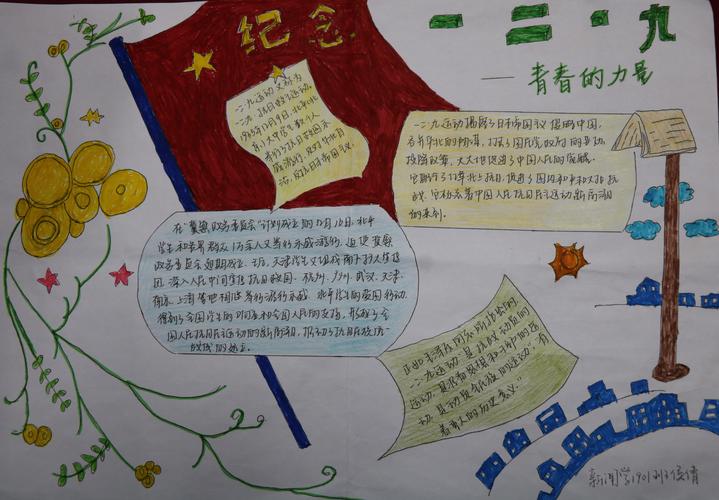 纪念
一二·九
——青春的力量
一二·九运动又称为
一二·九抗日救亡运动,
1935年12月9日,北平(北
京)大中学生数千人
举行了抗日救国示
威游行,反对华北自
治,反抗日本帝国主义,
一二·九运动揭露了日本帝国主义侵略中国,
吞并华北的阴谋,打击了国民党政府的妥协
投降政策,大大地促进了中国人民的觉醒。
它配合了红军北上抗日,促进了国内和平和对日抗
战。它标志着中国人民抗日民主运动新高潮
的来到。
在"冀察政务委员会"计划成立的12月16日,北平
学生和各界群众1万余人又举行示威游行,迫使冀察
政务委员会延期成立。之后,天津学生又组成南下扩大宣传
团,深入人民中间宣传抗日救国。杭州、广州、武汉、天津
南京、上海等地相继举行游行示威。北平学生的爱国行动,
得到了全国学生的响应和全国人民的支持,形成了全
国人民抗日民主运动的新高潮,推动了抗日民族统一
战线的建立。
正如毛泽东同志所指出的,
一二·九运动"是抗战动员的
运动,是准备思想和干部的运
动,是动员全民族的运动,有
着重大的历史意义"
新闻学1901班 侯倩